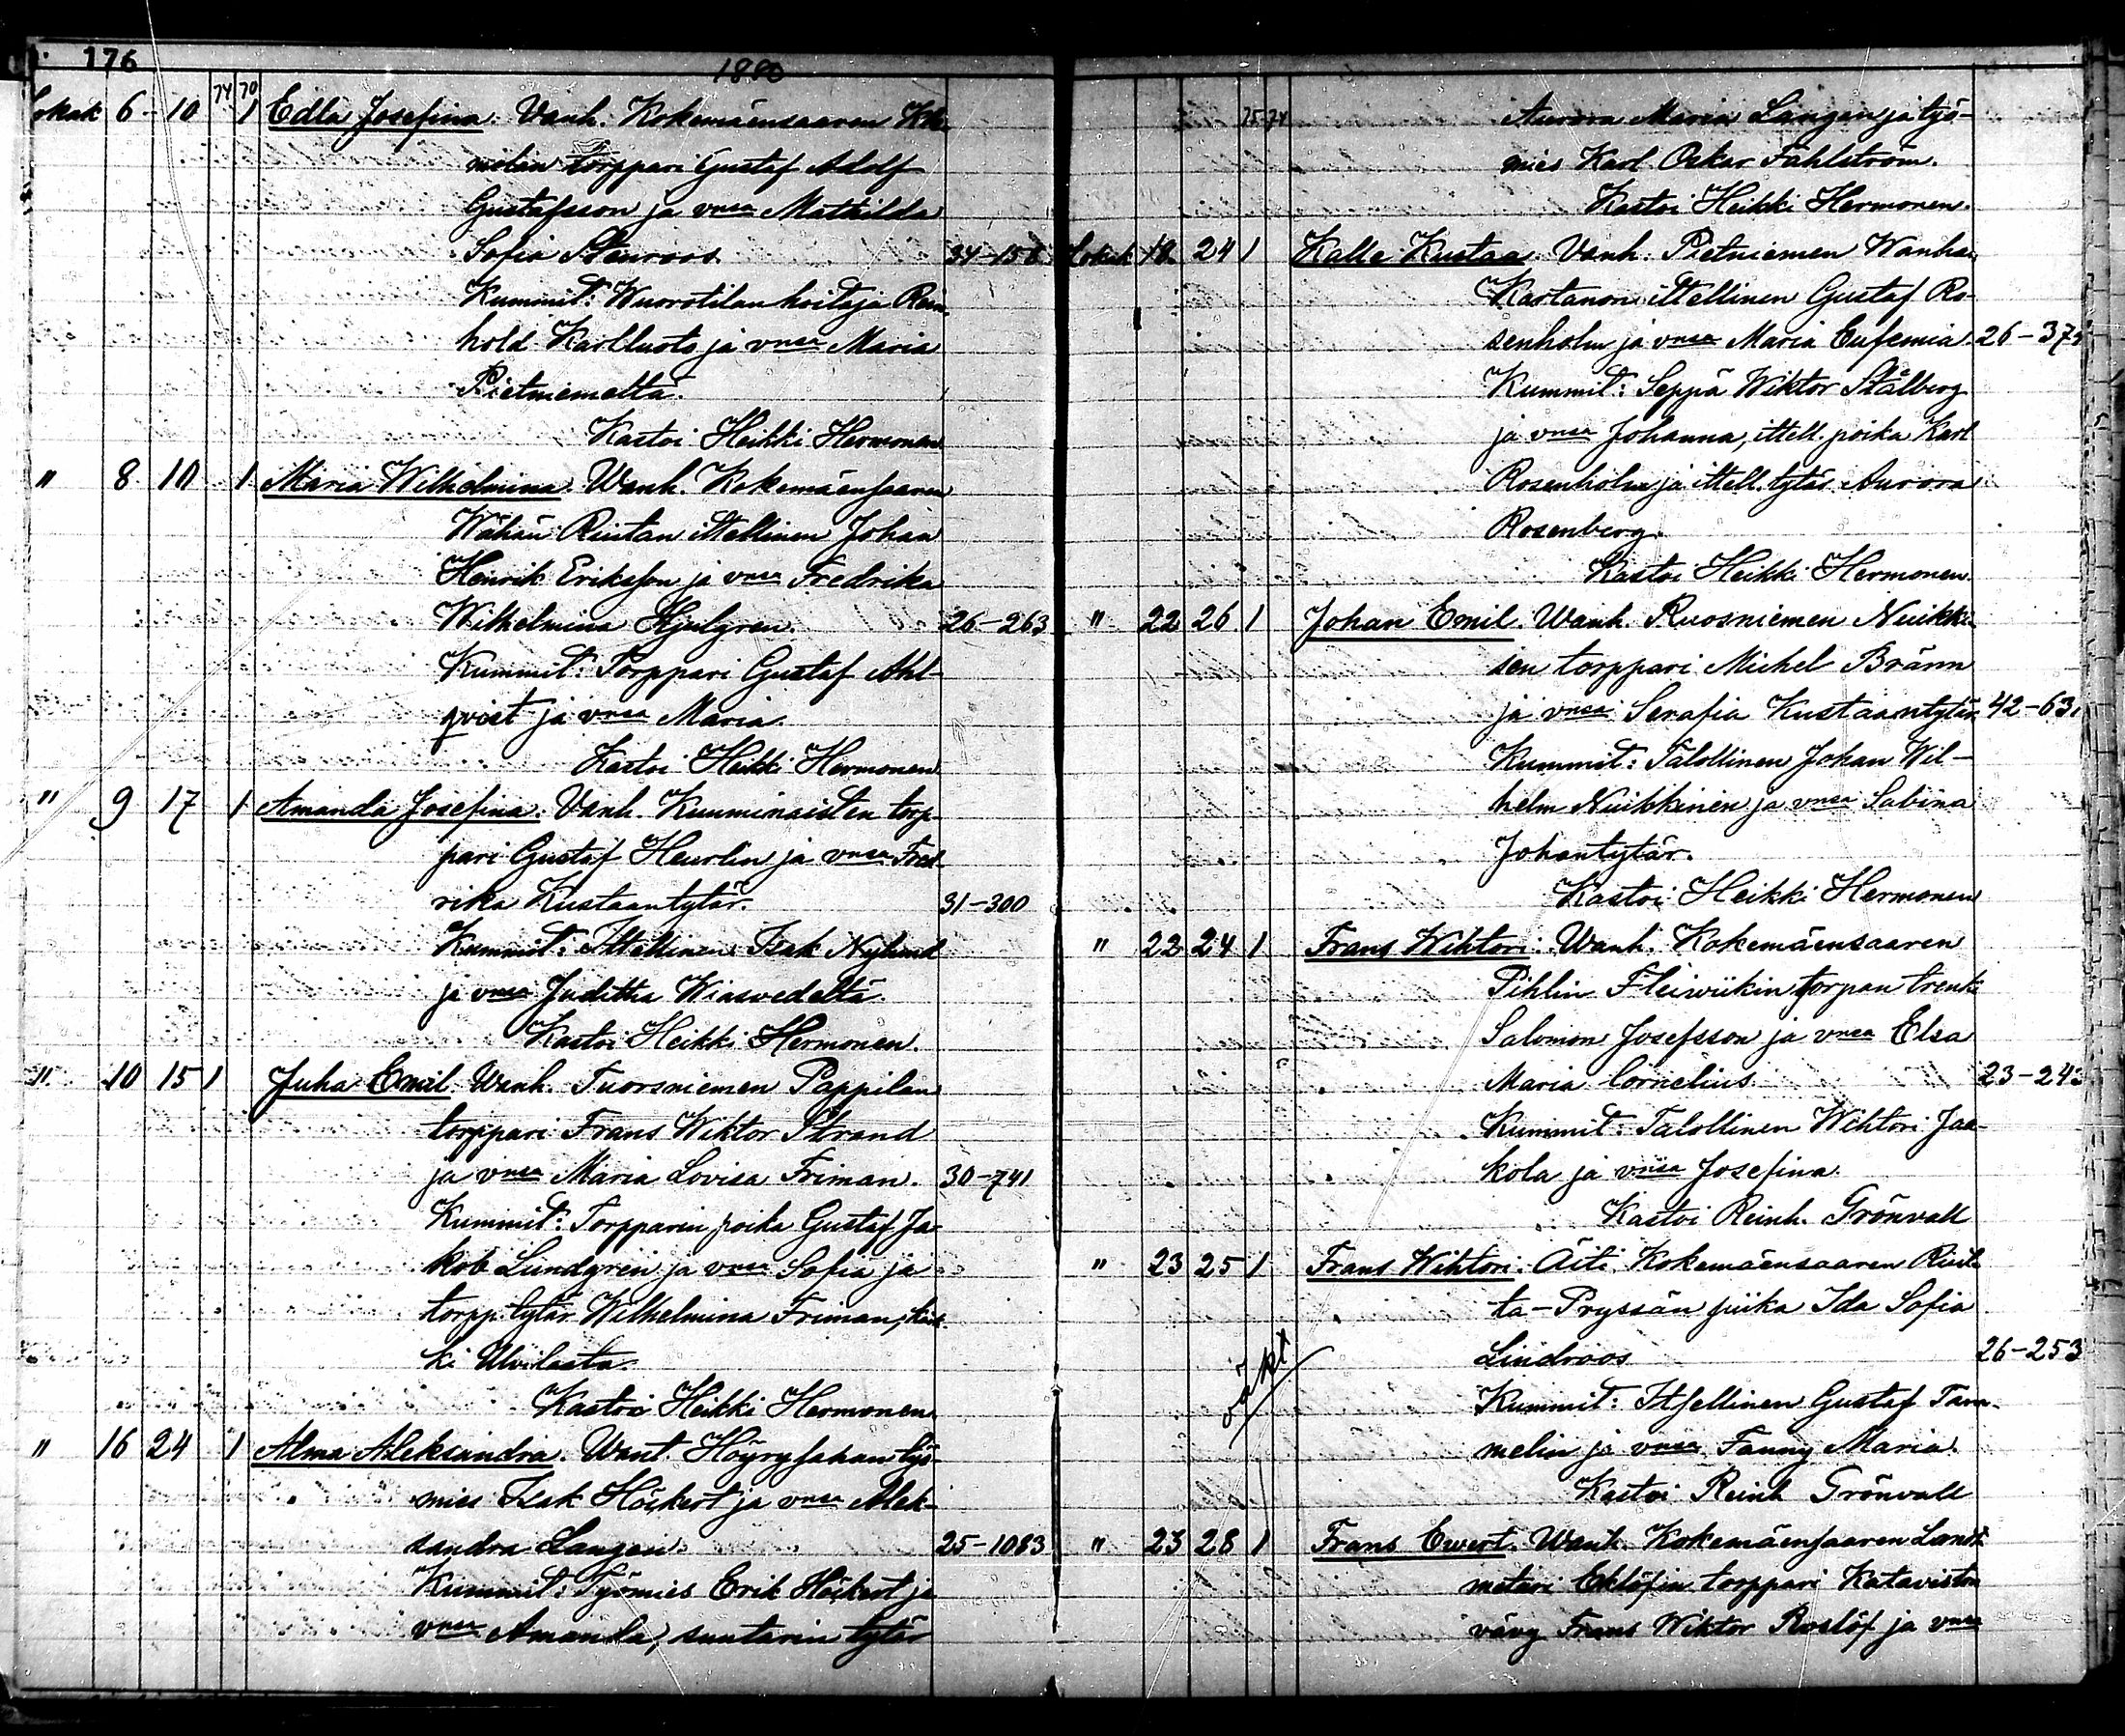 176
1890
74 70
Lokak 6 - 10 1 Edla Josefina. Vanh. Kokemäensaaren
melan torppari Gustaf Adolf
Gustafsson ja vnsa Mathilda
Sofia Stenroos 34-158
Kummit: Wuorotilan hoitaja Rein-
hold Karlluoto ja vnsa Maria
Pietniemeltä.
Kastoi Heikki Hermonen
" 8 10 1 Maria Wilhelmina. Wanh. Kokemäensaaren
Wähän Rintan ittellinen Johan
Henrik Eriksson ja vnsa Fredrika
Wilhelmina Hjulgren. 26-263
Kummit: Torppari Gustaf Ahl-
qvist ja vnsa Maria.
Kastoi Heikki Hermonen
" 9 17 1 Amanda Josefina. Vanh. Kuuminaisten torp-
pari Gustaf Heurlin ja vnsa Fred-
rika Kustaantytär. 31-300
Kummit: Ittellinen Isak Nylund
ja vnsa Juditha Wiasvedeltä.
Kastoi Heikki Hermonen.
" 10 15 1 Juha Emil. Wanh. Tuorsniemen Pappilan
torppari Frans Wiktor Strand
ja vnsa Maria Lovisa Friman. 30-741
Kummit: Torpparin poika Gustaf Ja-
kob Lundgren ja vnsa Sofia ja
torpp. tytär Wilhelmina Friman, kaik-
ki Ulvilasta.
Kastoi Heikki Hermonen
" 16 24 1 Alma Aleksandra. Wanh. Höyrysahan työ-
mies Isak Höckert ja vnsa Alek-
sandra Langen. 25-1083
Kummit: Työmies Erik Höckert ja
vnsa Amanda, suutarin tytär
75 74 Aurora Maria Langen ja työ-
mies Karl Oskar Fahlström.
Kastoi Heikki Hermonen.
Lokak 18 24 1 Kalle Kustaa. Vanh. Pietniemen Wanhan
Kartanon ittellinen Gustaf Ro-
senholm ja vnsa Maria Eufemia. 26-37
Kummit: Seppä Wiktor Stålberg
ja vnsa Johanna, ittell. poika Karl
Rosenholm ja ittell. tytär Aurora
Rosenberg.
Kastoi Heikki Hermonen
" 22 26 1 Johan Emil. Wanh. Ruosniemen Nuikki-
sen torppari Michel Bränn
ja vnsa Serafia Kustaantytär. 42-63
Kummit: Talollinen Johan Wil-
helm Nuikkinen ja vnsa Sabina
Johantytär.
Kastoi Heikki Hermonen
" 22 24 1 Frans Wihtori. Wanh. Kokemäensaaren
Pihlin Fleiwiikin torpan trenki
Salomon Josefsson ja vnsa Elsa
Maria Cornelius. 23-243
Kummit: Talollinen Wihtori Jaa-
kola ja vnsa Josefina.
Kastoi Reinh. Grönvall
" 23 25 1 Frans Wihtori. Äiti Kokemäensaaren
ta-Pryssän piika Ida Sofia
Lindroos 26-253
Kummit: Itsellinen Gustaf Tam-
melin ja vnsa Fanny Maria.
Kastoi Reinh Grönvall
" 23 28 1 Frans Ewert. Wanh. Kokemäensaaren Lant-
metari Eklöfin torppari Kataviston
vävy Frans Wiktor Roslöf ja vnsa